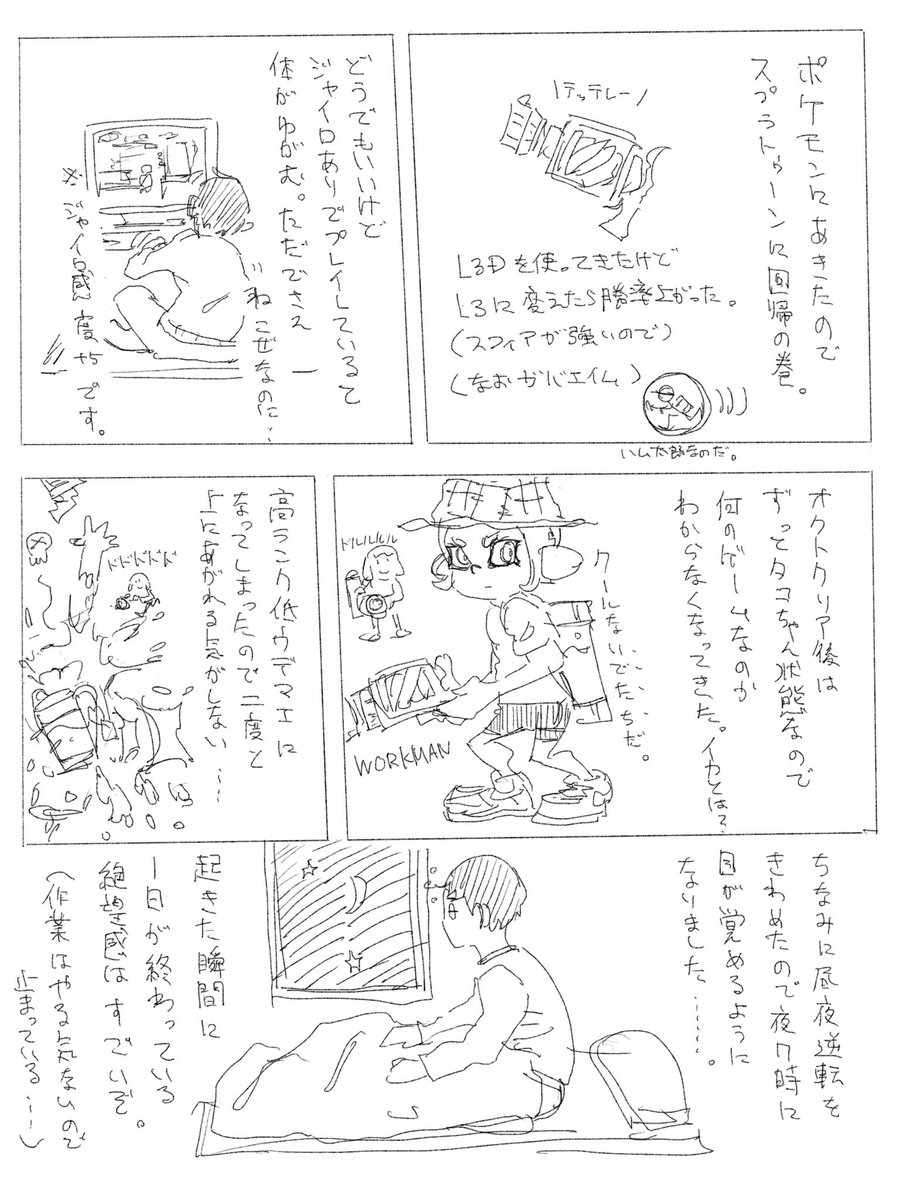 ポケモンにあきたので
スプラトゥーンに回帰の巻。
\テッテレー/
L3Dを使ってきたけど
L3に変えたら勝率上がった。
(スフィアが強いので)
(なおガバエイム)
ハム太郎なのだ。
どうでもいいけど
ジャイロありでプレイしているて
体がゆがむ。ただでさえ
ねこぜなのに…
※ジャイロ感度+5です。
オクトクリア後は
ずってタコちゃん状態なので
何のゲームなのか
わからなくなってきた。イカとは?
クールないでたちだ。
ドルルルル
WORKMAN
高ランク低ウデマエに
なってしまったので二度と
上にあがれる気がしない…
ドドドドド
ちなみに昼夜逆転を
きわめたので夜7時に
目が覚めるように
なりました……。
起きた瞬間に
一日が終わっている
絶望感はすでいぞ。
(作業はやる気ないので
止まっている…)